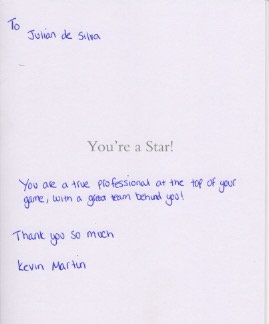 To
Julian de Silva
You're a Star!
You are a true professional at the top of your
game, with a great team behind you!
Thank you so much
Kevin Martin